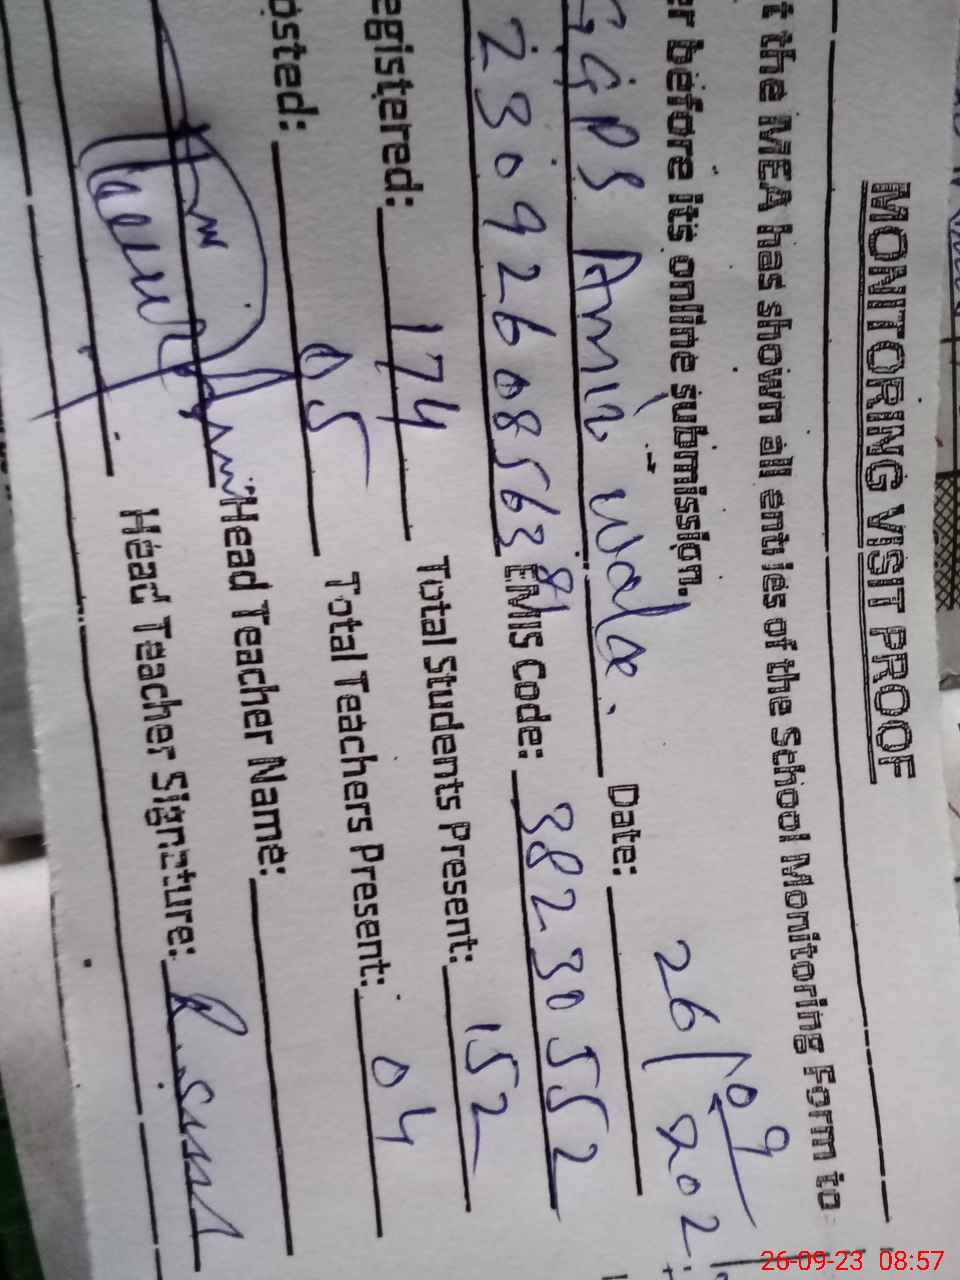 MONITORING VISIT PROOF
t the MEA has shown all entries of the School Monitoring Form to
er before its online submission.
GGPS Amin wala. Date: 26/09/202
2309260856381 EMIS Code: 38230552
egistered: 174 Total Students Present: 152
osted: 05 Total Teachers Present: 04
Head Teacher Name:
Head Teacher Signature:
26-09-23 08:57